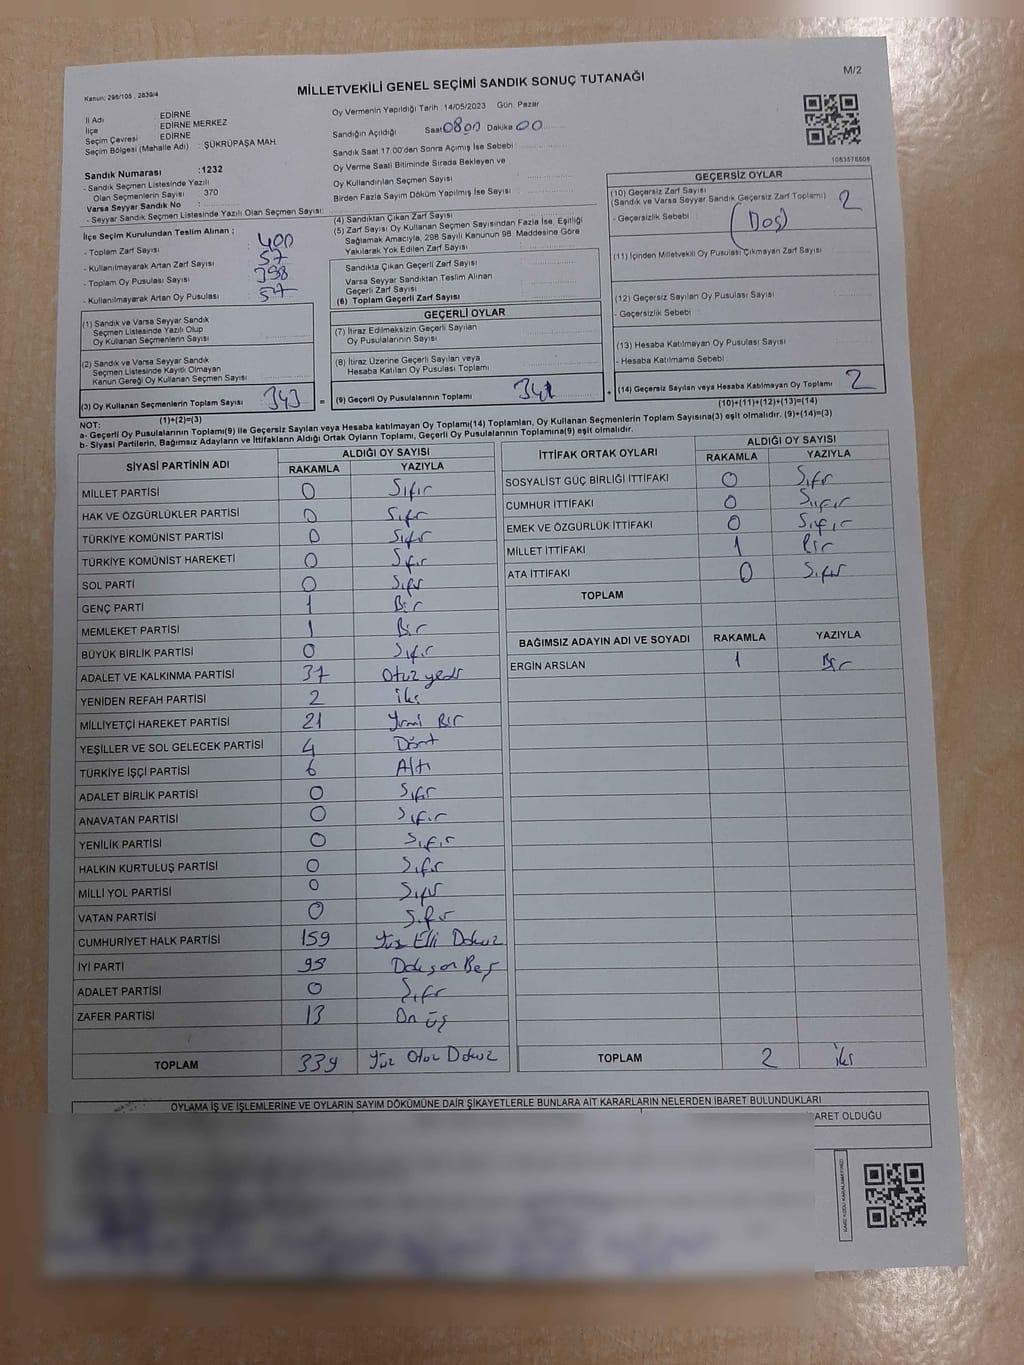 Kanun: 298/105 . 2839/4
MİLLETVEKİLİ GENEL SEÇİMİ SANDIK SONUÇ TUTANAĞI
M/2
İl Adı : EDİRNE
İlçe : EDİRNE MERKEZ
Seçim Çevresi : EDİRNE
Seçim Bölgesi (Mahalle Adı) : ŞÜKRÜPAŞA MAH.
Sandık Numarası : 1232
- Sandık Seçmen Listesinde Yazılı
Olan Seçmenlerin Sayısı : 370
Varsa Seyyar Sandık No :
- Seyyar Sandık Seçmen Listesinde Yazılı Olan Seçmen Sayısı:
İlçe Seçim Kurulundan Teslim Alınan ;
- Toplam Zarf Sayısı : 400
- Kullanılmayarak Artan Zarf Sayısı : 57
- Toplam Oy Pusulası Sayısı : 398
- Kullanılmayarak Artan Oy Pusulası : 57
(1) Sandık ve Varsa Seyyar Sandık
Seçmen Listesinde Yazılı Olup
Oy Kullanan Seçmenlerin Sayısı
(2) Sandık ve Varsa Seyyar Sandık
Seçmen Listesinde Kayıtlı Olmayan
Kanun Gereği Oy Kullanan Seçmen Sayısı
(3) Oy Kullanan Seçmenlerin Toplam Sayısı 343 =
(1)+(2)=(3)
Oy Vermenin Yapıldığı Tarih :14/05/2023 Gün: Pazar
Sandığın Açıldığı Saat 08 00 Dakika 00
Sandık Saat 17:00'den Sonra Açımış İse Sebebi :
Oy Verme Saati Bitiminde Sırada Bekleyen ve
Oy Kullandırılan Seçmen Sayısı
Birden Fazla Sayım Döküm Yapılmış İse Sayısı :
(4) Sandıktan Çıkan Zarf Sayısı
(5) Zarf Sayısı Oy Kullanan Seçmen Sayısından Fazla İse, Eşitliği
Sağlamak Amacıyla, 298 Sayılı Kanunun 98. Maddesine Göre
Yakılarak Yok Edilen Zarf Sayısı
Sandıkta Çıkan Geçerli Zarf Sayısı
Varsa Seyyar Sandıktan Teslim Alınan
Geçerli Zarf Sayısı
(6) Toplam Geçerli Zarf Sayısı
GEÇERLİ OYLAR
(7) İtiraz Edilmeksizin Geçerli Sayılan
Oy Pusulalarının Sayısı
(8) İtiraz Üzerine Geçerli Sayılan veya
Hesaba Katılan Oy Pusulası Toplamı
(9) Geçerli Oy Pusulalarının Toplamı 341 +
1083578808
GEÇERSİZ OYLAR
(10) Geçersiz Zarf Sayısı
(Sandık ve Varsa Seyyar Sandık Geçersiz Zarf Toplamı) 2
- Geçersizlik Sebebi : (Boş)
(11) İçinden Milletvekili Oy Pusulası Çıkmayan Zarf Sayısı
(12) Geçersiz Sayılan Oy Pusulası Sayısı
- Geçersizlik Sebebi :
(13) Hesaba Katılmayan Oy Pusulası Sayısı
- Hesaba Katılmama Sebebi :
(14) Geçersiz Sayılan veya Hesaba Katılmayan Oy Toplamı 2
(10)+(11)+(12)+(13)=(14)
NOT:
a- Geçerli Oy Pusulalarının Toplamı(9) ile Geçersiz Sayılan veya Hesaba katılmayan Oy Toplamı(14) Toplamları, Oy Kullanan Seçmenlerin Toplam Sayısına(3) eşit olmalıdır. (9)+(14)=(3)
b- Siyasi Partilerin, Bağımsız Adayların ve İttifakların Aldığı Ortak Oyların Toplamı, Geçerli Oy Pusulalarının Toplamına(9) eşit olmalıdır.
SİYASİ PARTİNİN ADI ALDIĞI OY SAYISI
RAKAMLA YAZIYLA
MİLLET PARTİSİ 0 Sıfır
HAK VE ÖZGÜRLÜKLER PARTİSİ 0 Sıfır
TÜRKİYE KOMÜNİST PARTİSİ 0 Sıfır
TÜRKİYE KOMÜNİST HAREKETİ 0 Sıfır
SOL PARTİ 0 Sıfır
GENÇ PARTİ 1 Bir
MEMLEKET PARTİSİ 1 Bir
BÜYÜK BİRLİK PARTİSİ 0 Sıfır
ADALET VE KALKINMA PARTİSİ 37 Otuz yedi
YENİDEN REFAH PARTİSİ 2 iki
MİLLİYETÇİ HAREKET PARTİSİ 21 Yirmi Bir
YEŞİLLER VE SOL GELECEK PARTİSİ 4 Dört
TÜRKİYE İŞÇİ PARTİSİ 6 Altı
ADALET BİRLİK PARTİSİ 0 Sıfır
ANAVATAN PARTİSİ 0 Sıfır
YENİLİK PARTİSİ 0 Sıfır
HALKIN KURTULUŞ PARTİSİ 0 Sıfır
MİLLİ YOL PARTİSİ 0 Sıfır
VATAN PARTİSİ 0 Sıfır
CUMHURİYET HALK PARTİSİ 159 Yüz Elli Dokuz
İYİ PARTİ 95 Doksan Beş
ADALET PARTİSİ 0 Sıfır
ZAFER PARTİSİ 13 On üç
TOPLAM 339 Yüz Otuz Dokuz
İTTİFAK ORTAK OYLARI ALDIĞI OY SAYISI
RAKAMLA YAZIYLA
SOSYALİST GÜÇ BİRLİĞİ İTTİFAKI 0 Sıfır
CUMHUR İTTİFAKI 0 Sıfır
EMEK VE ÖZGÜRLÜK İTTİFAKI 0 Sıfır
MİLLET İTTİFAKI 1 Bir
ATA İTTİFAKI 0 Sıfır
TOPLAM
BAĞIMSIZ ADAYIN ADI VE SOYADI RAKAMLA YAZIYLA
ERGİN ARSLAN 1 Bir
TOPLAM 2 iki
OYLAMA İŞ VE İŞLEMLERİNE VE OYLARIN SAYIM DÖKÜMÜNE DAİR ŞİKAYETLERLE BUNLARA AİT KARARLARIN NELERDEN İBARET BULUNDUKLARI
BARET OLDUĞU